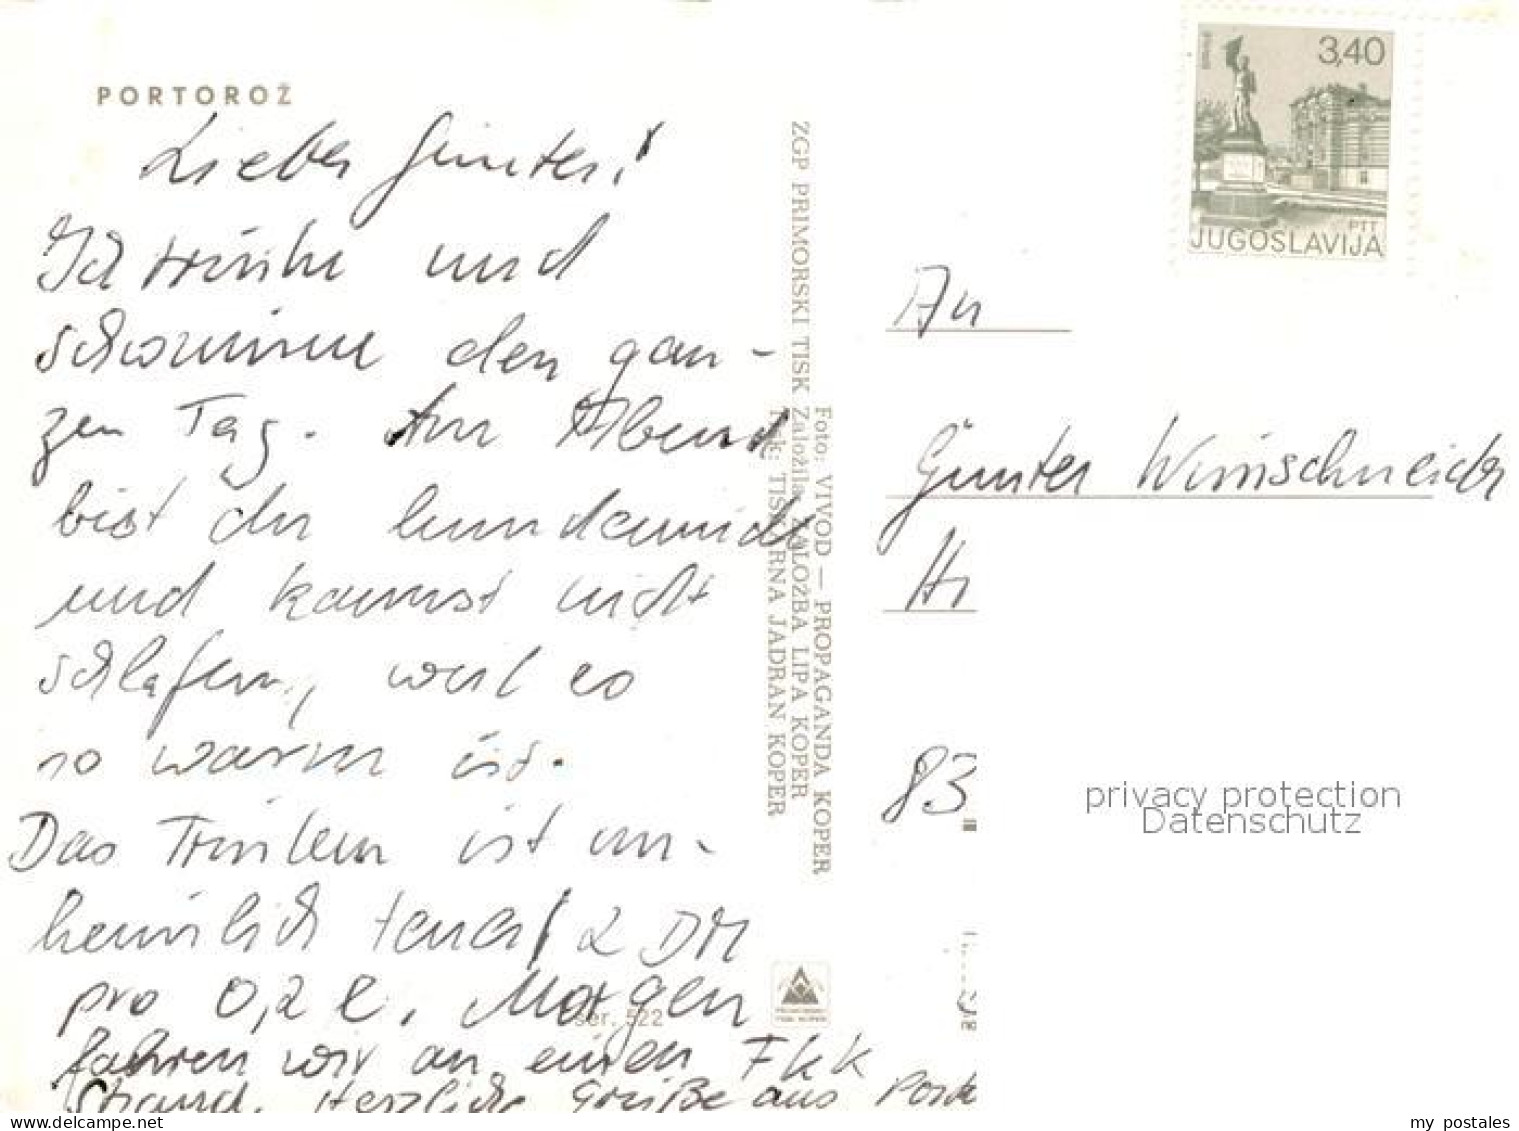 PORTOROŽ
Lieber Günter!
Ich trinke und
schwimme den gan-
zen Tag. Am Abend
bist du hundemüde
und kannst nicht
schlafen, weil es
so warm ist.
Das Trinken ist un-
heimlich teuer! 2 DM
pro 0,2 l. Morgen
fahren wir an einen FKK
Strand. Herzliche Grüße aus
ser. 522
ZGP PRIMORSKI TISK Založila ZALOŽBA LIPA KOPER
Foto: VIVOD — PROPAGANDA KOPER
Tisk: TISKARNA JADRAN KOPER
3,40
PTT
JUGOSLAVIJA
An
Günter
83
privacy protection
Datenschutz
www.delcampe.net
my_postales